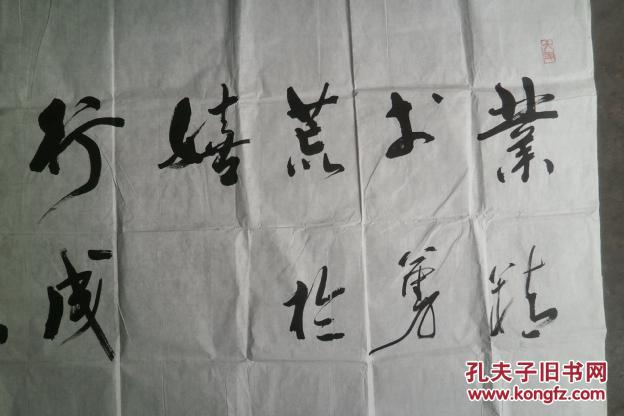 業精
于勤
荒於
嬉
行成
孔夫子旧书网
www.kongfz.com